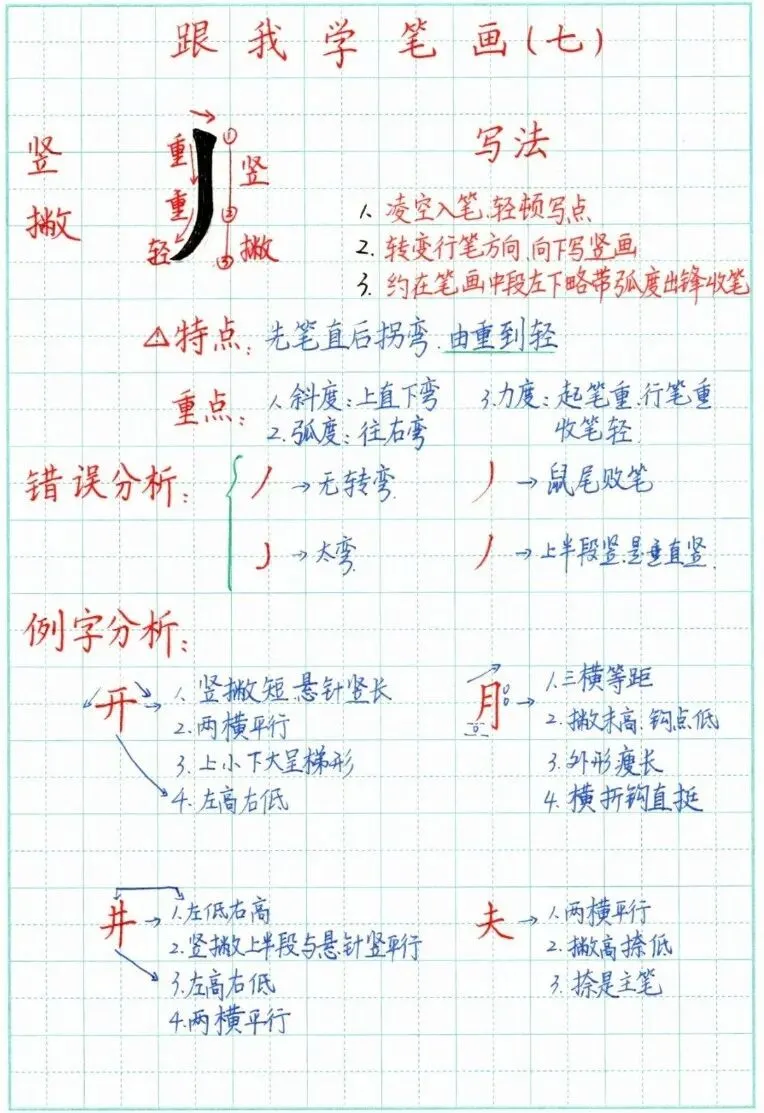 跟我学笔画(七)
竖撇
重
重
轻
①
②
③
竖
撇
写法
1. 凌空入笔、轻顿写点
2. 转变行笔方向、向下写竖画
3. 约在笔画中段左下略带弧度出锋收笔
⚠特点: 先笔直后拐弯、由重到轻
重点: 1. 斜度:上直下弯
2. 弧度:往右弯
3. 力度:起笔重、行笔重
收笔轻
错误分析:
→无转弯
→鼠尾败笔
→太弯
→上半段竖是垂直竖
例字分析:
开
1. 竖撇短、悬针竖长
2. 两横平行
3. 上小下大呈梯形
4. 左高右低
月
1. 三横等距
2. 撇末高、钩点低
3. 外形瘦长
4. 横折钩直挺
井
1. 左低右高
2. 竖撇上半段与悬针竖平行
3. 左高右低
4. 两横平行
夫
1. 两横平行
2. 撇高捺低
3. 捺是主笔